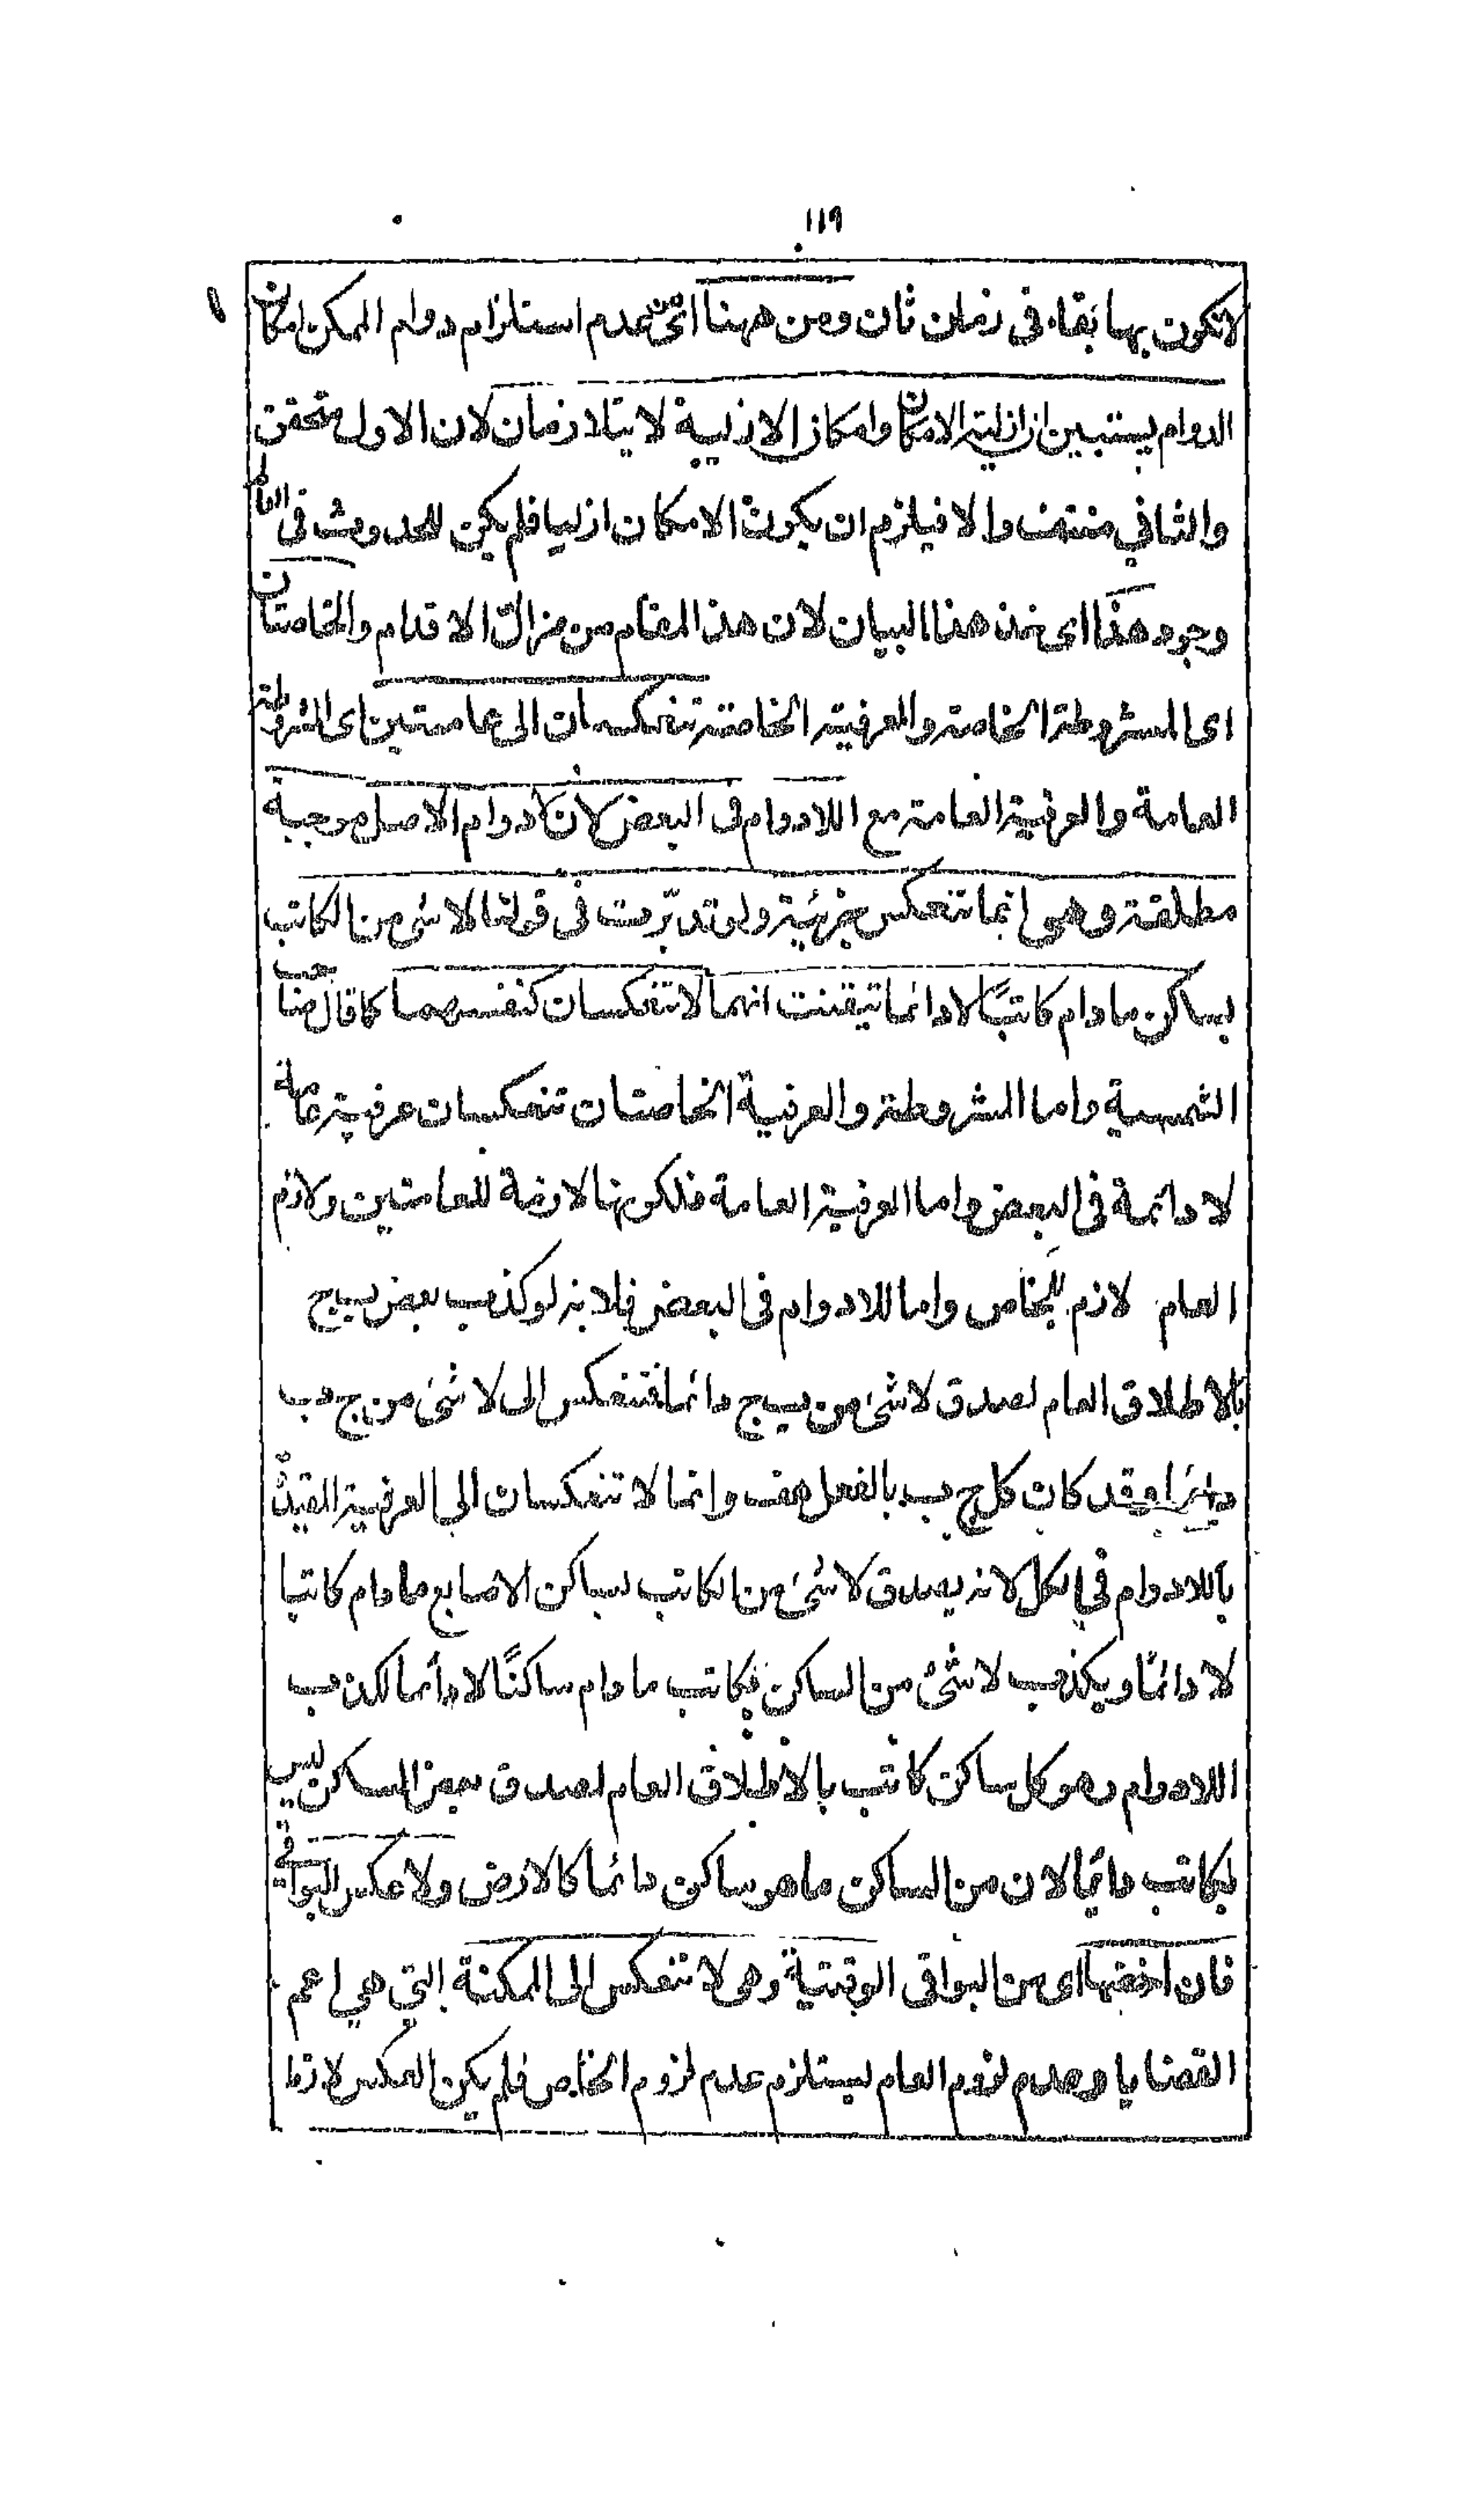 ١١٩
لا تكون بها بقاء فى زمان ثان ومن ههنا اى من عدم استلزام دوام الممكن امكان
الدوام يستبين ان ازلية الامكان وامكان الازلية لا يتلازمان لان الاول متحقق
والثانى منتف والا فيلزم ان يكون الامكان ازليا فلم يكن للحدوث فى العالم
وجود هذا اى خذ هذا البيان لان هذا المقام من مزال الاقدام والخاصتان
اى المشروطة الخاصة والعرفية الخاصة تنعكسان الى عامتين اى المشروطة
العامة والعرفية العامة مع اللادوام فى البعض لان لادوام الاصل موجبة
مطلقة وهى انما تنعكس جزئية ولو تدبرت فى قولنا لا شئ من الكاتب
بساكن ما دام كاتبًا لا دائما تيقنت انهما لا تنعكسان كنفسهما كما قال صاحب
الشمسية واما المشروطة والعرفية الخاصتان تنعكسان عرفية عامة
لا دائمة فى البعض واما العرفية العامة فلكونها لازمة للعامتين ولازم
العام لازم للخاص واما اللادوام فى البعض فلانه لو كذب بعض ب ج
بالاطلاق العام لصدق لا شئ من ب ج دائما فتنعكس الى لا شئ من ج ب
دائما وقد كان كل ج ب بالفعل هف وانما لا تنعكسان الى العرفية المقيدة
باللادوام فى الكل لانه يصدق لا شئ من الكاتب بساكن الاصابع ما دام كاتبا
لا دائمًا ويكذب لا شئ من الساكن بكاتب ما دام ساكنًا لا دائما لكذب
اللادوام وهو كل ساكن كاتب بالاطلاق العام لصدق بعض الساكن ليس
بكاتب دائما لان من الساكن ما هو ساكن دائما كالارض ولا عكس للبواقى
فان اخصها اى من البواقى الوقتية وهى لا تنعكس الى الممكنة التى هى اعم
القضايا وعدم لزوم العام يستلزم عدم لزوم الخاص فلم يكن العكس لازما